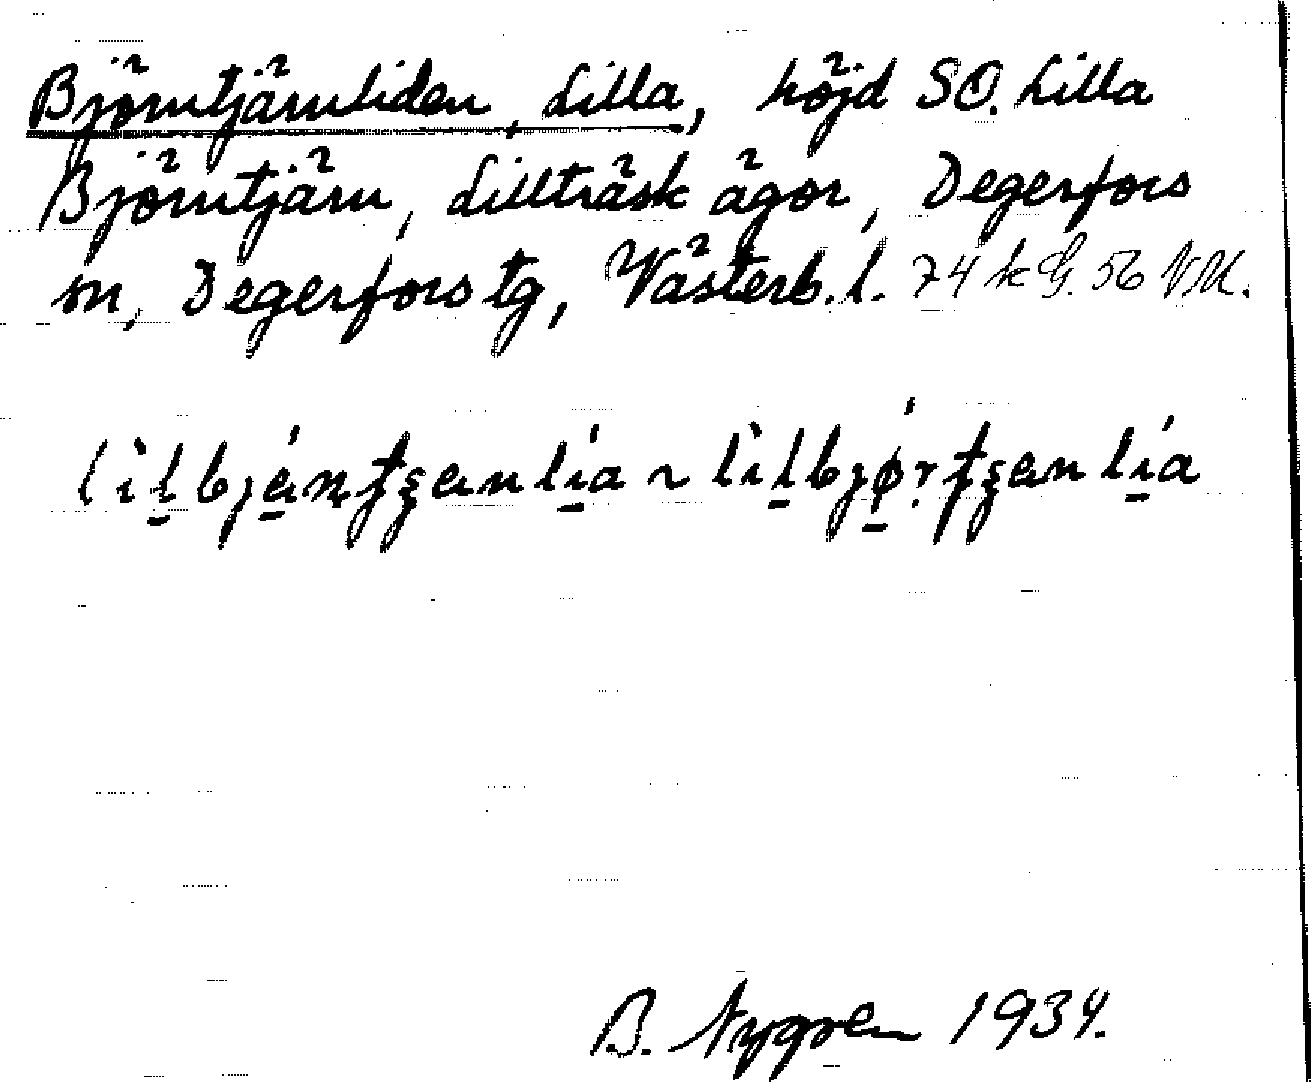 Björntjärnliden, Lilla, höjd SO. Lilla
Björntjärn, Lillträsk ägor, Degerfors
sn, Degerfors tg, Västerb. l. 74 k G. 56 NM.
lìl̠bjá̠ṇtʂanlí̠a ~ lìl̠bjǿ̠ṛtʂanlí̠a
B. Nygren 1934.